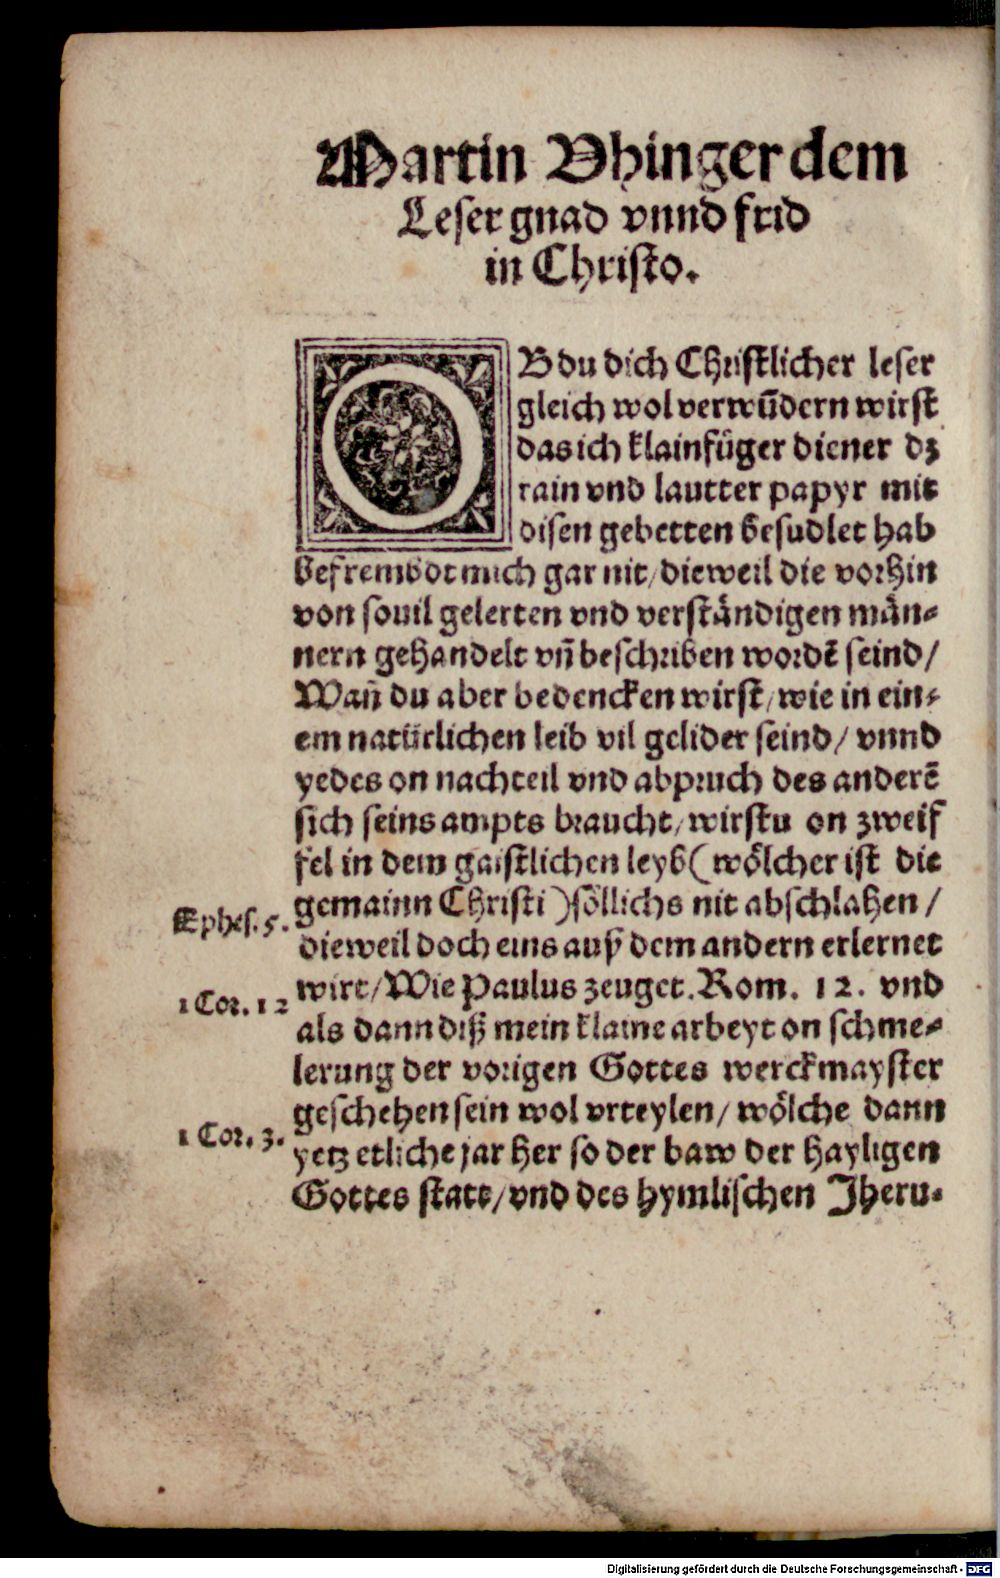 Martin Vhinger dem
Leser gnad vnnd frid
in Christo.
OB du dich Christlicher leser
gleich wol verwūdern wirst
das ich klainfüger diener dz
rain vnd lautter papyr mit
disen gebetten besudlet hab
befrembdt mich gar nit/dieweil die vorhin
von souil gelerten vnd verständigen män⸗
nern gehandelt vn̄ beschriben wordē seind/
Wan̄ du aber bedencken wirst/wie in ein⸗
em natürlichen leib vil gelider seind/ vnnd
yedes on nachteil vnd abpruch des anderē
sich seins ampts braucht/wirstu on zweif
fel in dem gaistlichen leyb(wölcher ist die
Ephes.5. gemainn Christi)söllichs nit abschlahen /
dieweil doch eins auß dem andern erlernet
1 Cor. 12 wirt/Wie Paulus zeuget.Rom. 12. vnd
als dann diß mein klaine arbeyt on schme⸗
lerung der vorigen Gottes werckmayster
geschehen sein wol vrteylen/ wölche dann
1 Cor. 3. yetz etliche jar her so der baw der hayligen
Gottes statt/vnd des hymlischen Jheru⸗
Digitalisierung gefördert durch die Deutsche Forschungsgemeinschaft - DFG